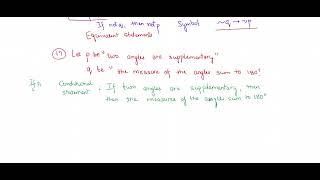 If not q, then not p Symbol ~q → ~p
Equivalent statements
(17) Let p be "two angles are supplementary"
q be "the measure of the angles sum to 180°
If h Conditional : If two angles are supplementary, then
statement the measures of the angles sum to 180°